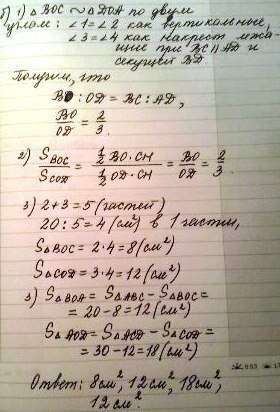 б) 1) △BOC ~ △DOA по двум
углам: ∠1=∠2 как вертикальные,
∠3=∠4 как накрест лежа-
щие при BC∥AD и
секущей BD
Получим, что
BO : OD = BC : AD,
BO/OD = 2/3.
2) S BOC / S COD = (1/2 BO·CH) / (1/2 OD·CH) = BO/OD = 2/3.
3) 2+3=5 (частей)
20 : 5 = 4 (см²) в 1 части,
S△BOC = 2·4 = 8 (см²)
S△COD = 3·4 = 12 (см²)
3) S△BOA = S△ABC − S△BOC =
= 20−8 = 12 (см²)
S△AOD = S△ACD − S△COD =
= 30−12 = 18 (см²)
Ответ: 8см², 12см², 18см²,
12см².